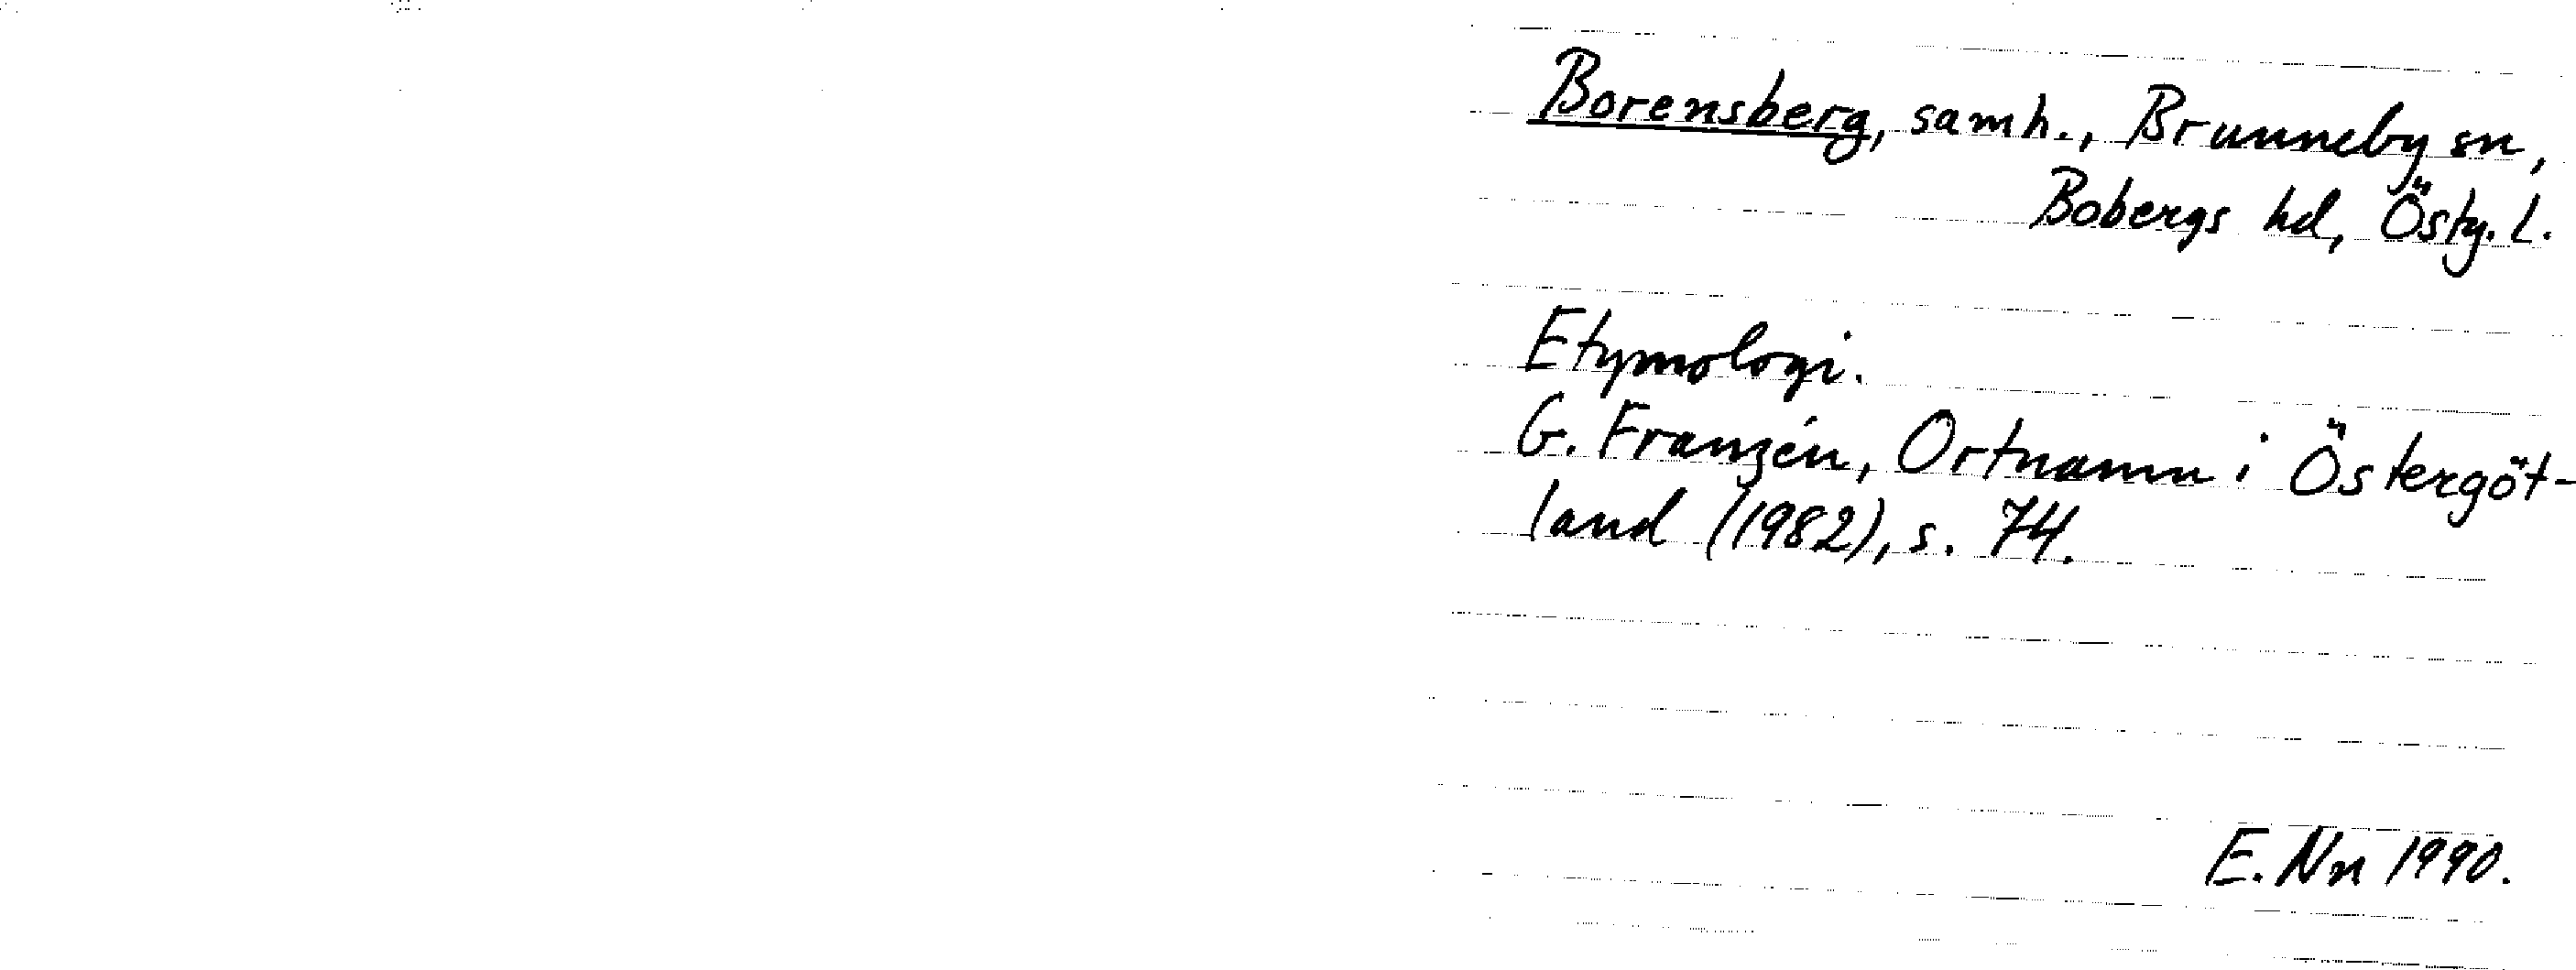 Borensberg, samh., Brunneby sn,
Bobergs hd, Östg. l.
Etymologi.
G. Franzén, Ortnamn i Östergöt-
land (1982), s. 74.
E. Nn 1990.